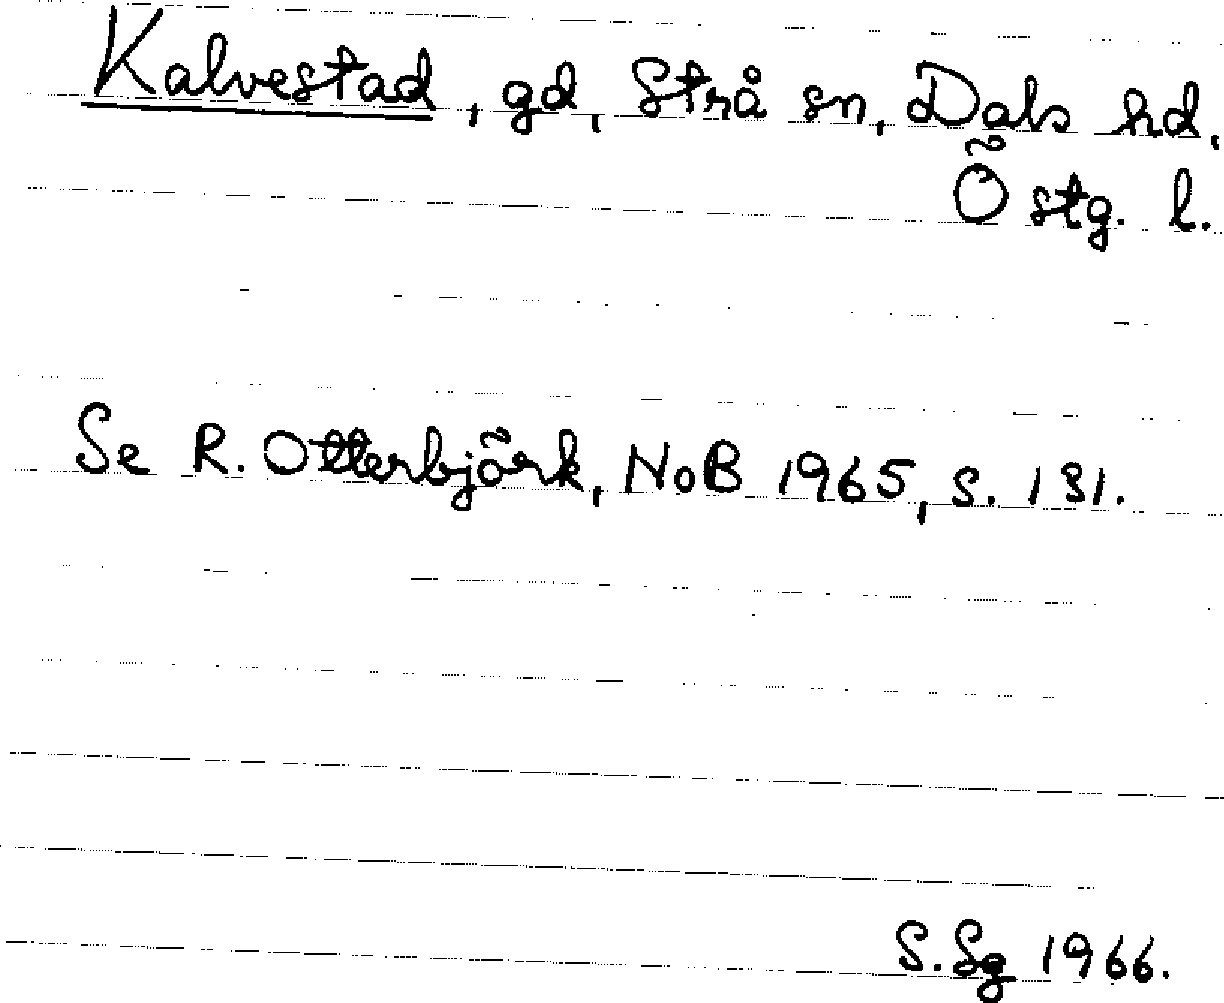 Kalvestad, gd, Strå sn, Dals hd,
Östg. l.
Se R. Otterbjörk, NoB 1965, s. 131.
S. Sg 1966.